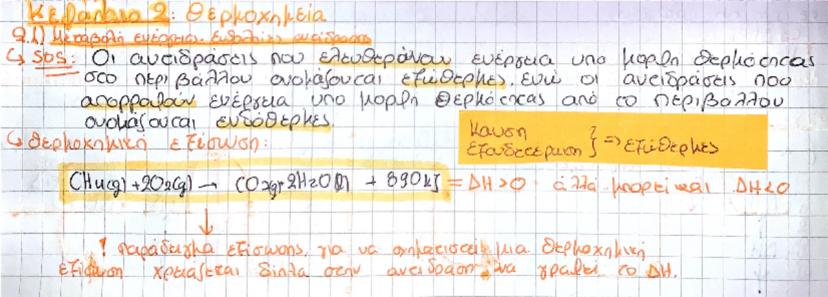 Κεφάλαιο 2: Θερμοχημεία
2.1) Μεταβολή ενέργειας. Ενθαλπία αντίδρασης
↳ SOS: Οι αντιδράσεις που ελευθερώνουν ενέργεια υπο μορφη θερμότητας
στο περιβάλλον ονομάζονται εξώθερμες, ενώ οι αντιδράσεις που
απορροφούν ενέργεια υπο μορφη θερμότητας από το περιβάλλον
ονομάζονται ενδόθερμες.
Καυση
εξουδετερωση } => εξώθερμες
↳ θερμοχημική εξίσωση:
CH4(g) + 2O2(g) → CO2(g) + 2H2O(l) + 890kJ = ΔH>0 αλλά μπορεί και ΔH<0
↓
! παράδειγμα εξίσωσης, για να σχηματιστεί μια θερμοχημική
εξίσωση χρειάζεται δίπλα στην αντιδραση να γραφεί το ΔΗ.